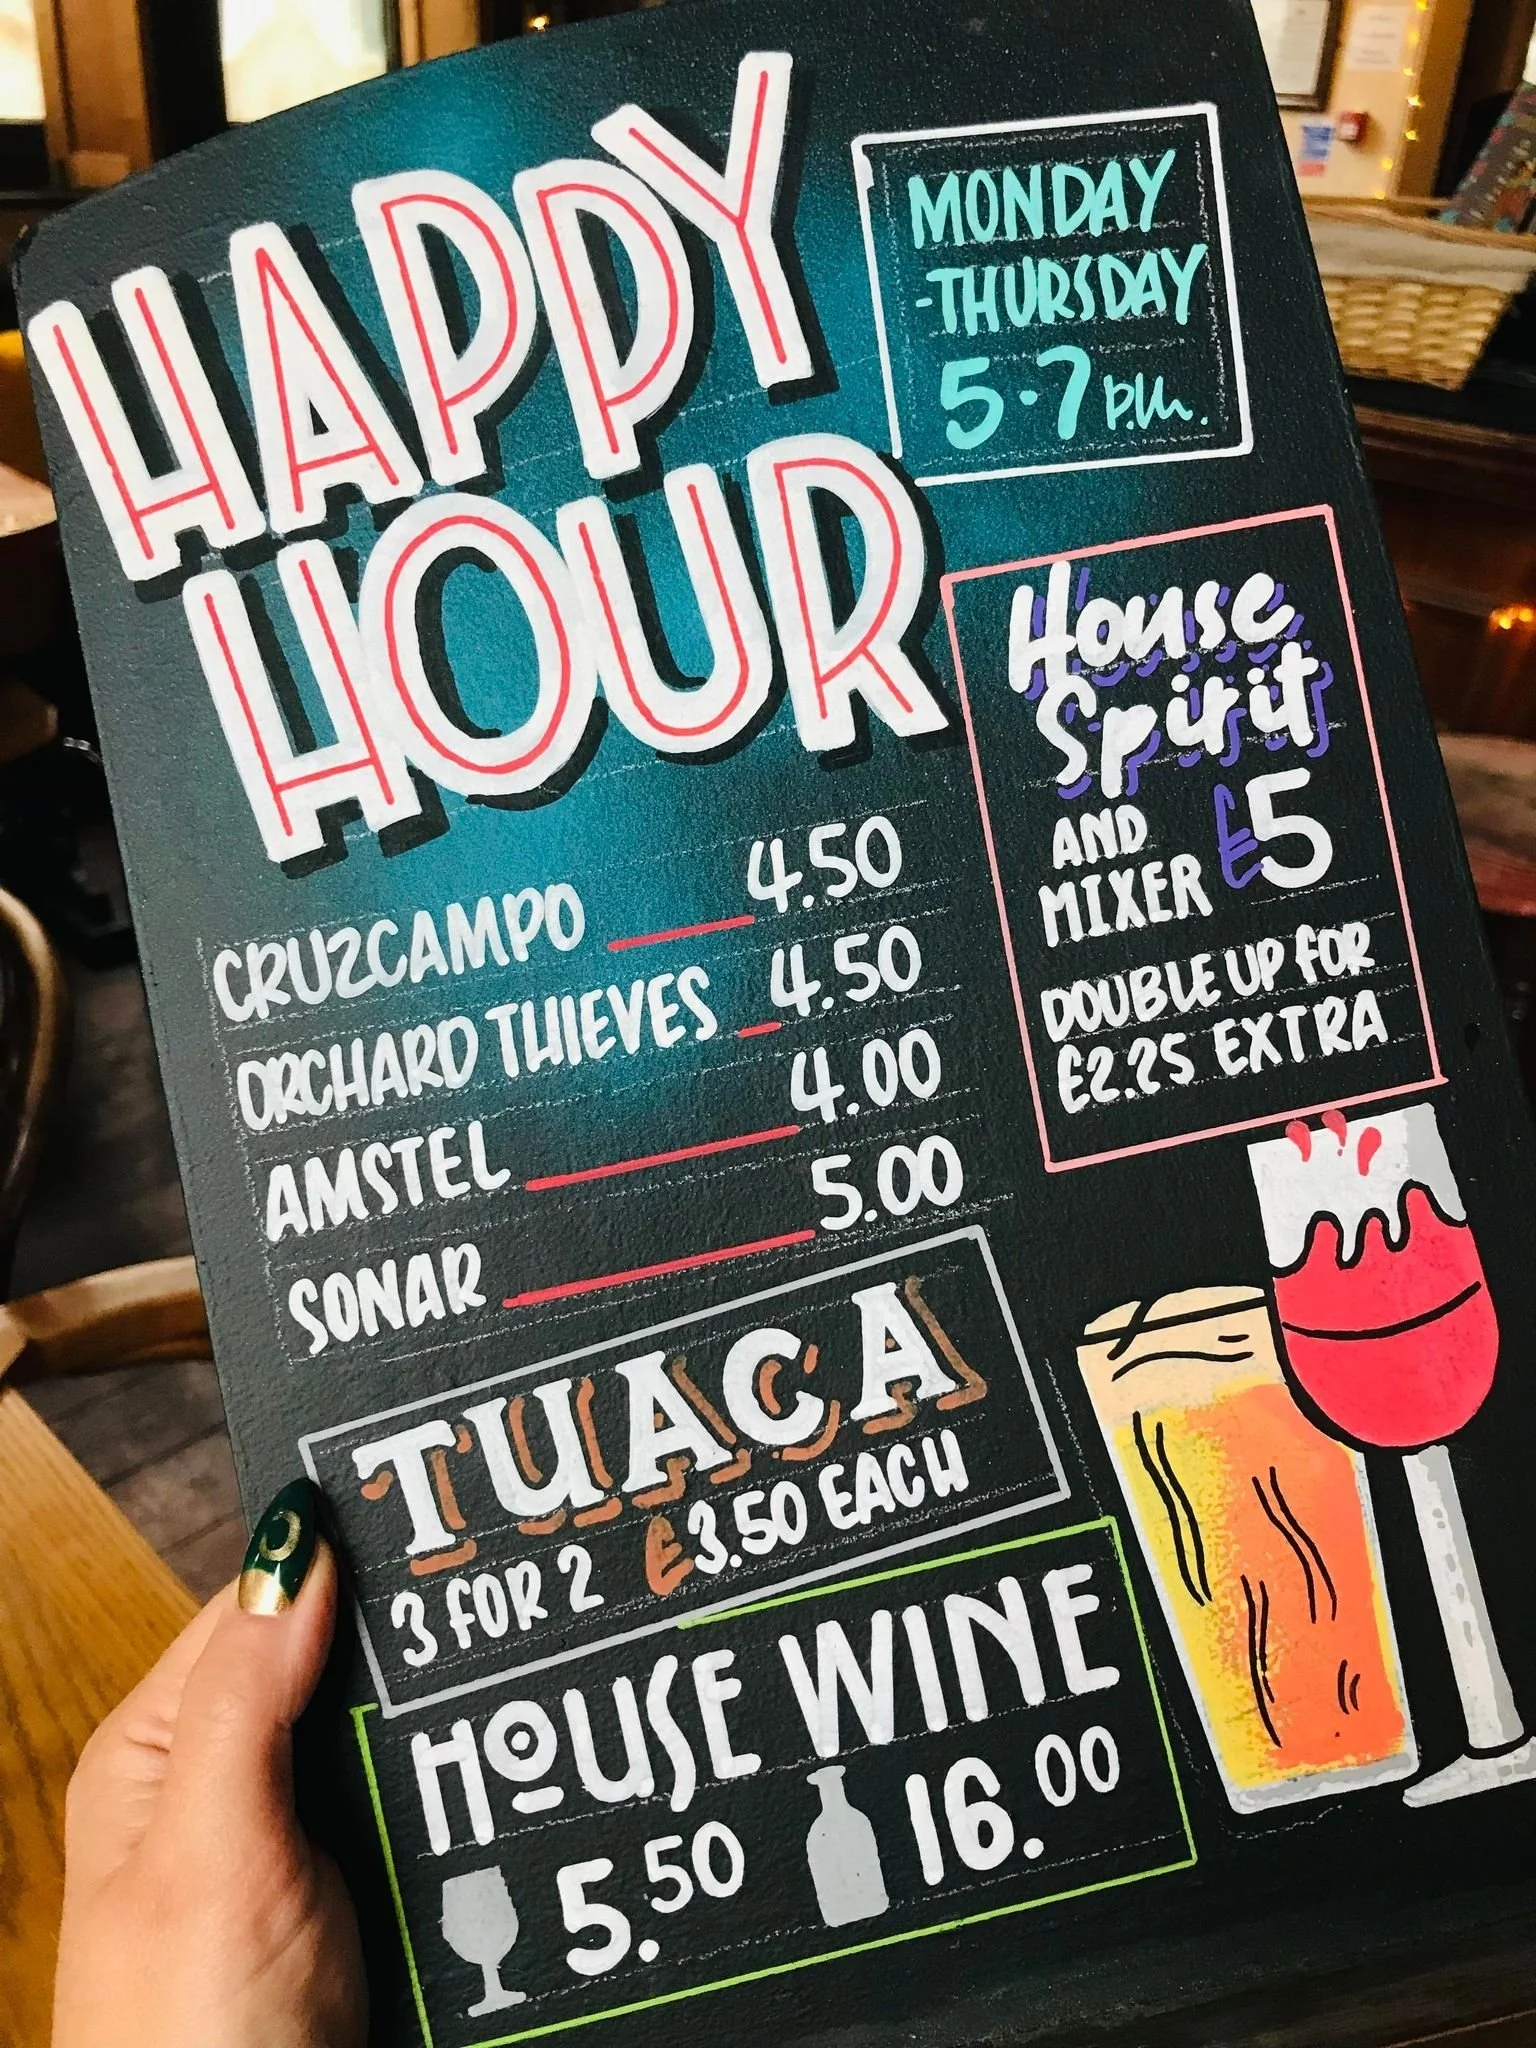 HAPPY
HOUR
MONDAY
-THURSDAY
5·7 p.m.
House
Spirit
AND
MIXER £5
DOUBLE UP FOR
£2.25 EXTRA
CRUZCAMPO 4.50
ORCHARD THIEVES 4.50
AMSTEL 4.00
SONAR 5.00
TUACA
3 FOR 2 £3.50 EACH
HOUSE WINE
5.50 16.00